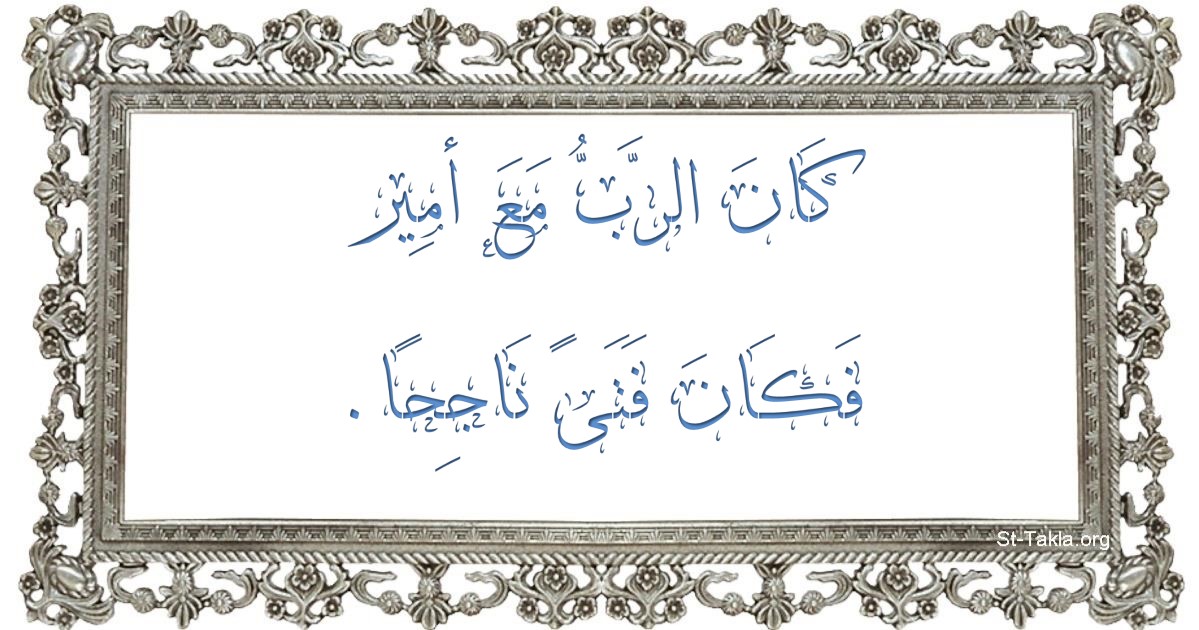 كَانَ الرَّبُّ مَعَ أمِير
فَكَانَ فَتَىً نَاجِحًا .
St-Takla.org